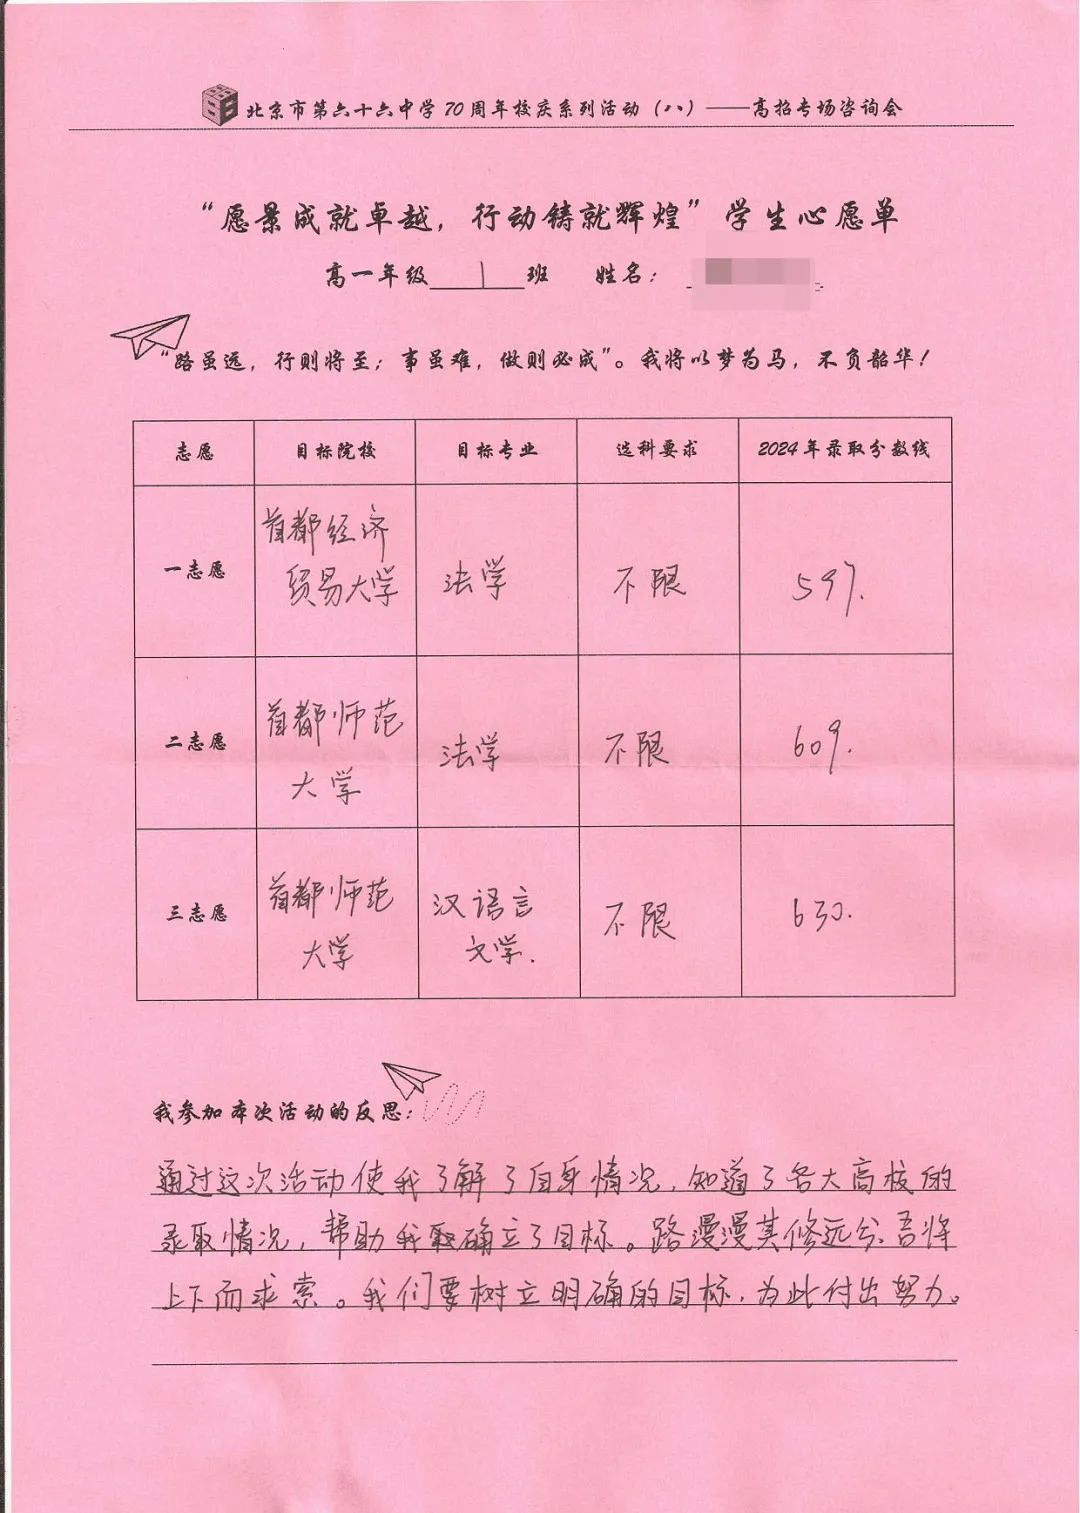 北京市第六十六中学70周年校庆系列活动（八）——高招专场咨询会
“愿景成就卓越，行动铸就辉煌”学生心愿单
高一年级 1 班 姓名：
“路虽远，行则将至；事虽难，做则必成”。我将以梦为马，不负韶华！
志愿 目标院校 目标专业 选科要求 2024年录取分数线
一志愿 首都经济贸易大学 法学 不限 597.
二志愿 首都师范大学 法学 不限 609.
三志愿 首都师范大学 汉语言文学. 不限 630.
我参加本次活动的反思：
通过这次活动使我了解了自身情况，知道了各大高校的
录取情况，帮助我确立了目标。路漫漫其修远兮吾将
上下而求索。我们要树立明确的目标，为此付出努力。